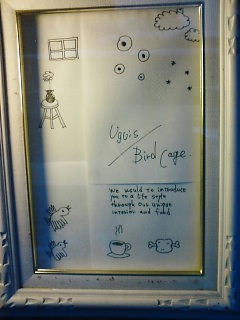 Uguis/
Bird Cage.
We would to introduce
you to a life style
through our unique
interior and food